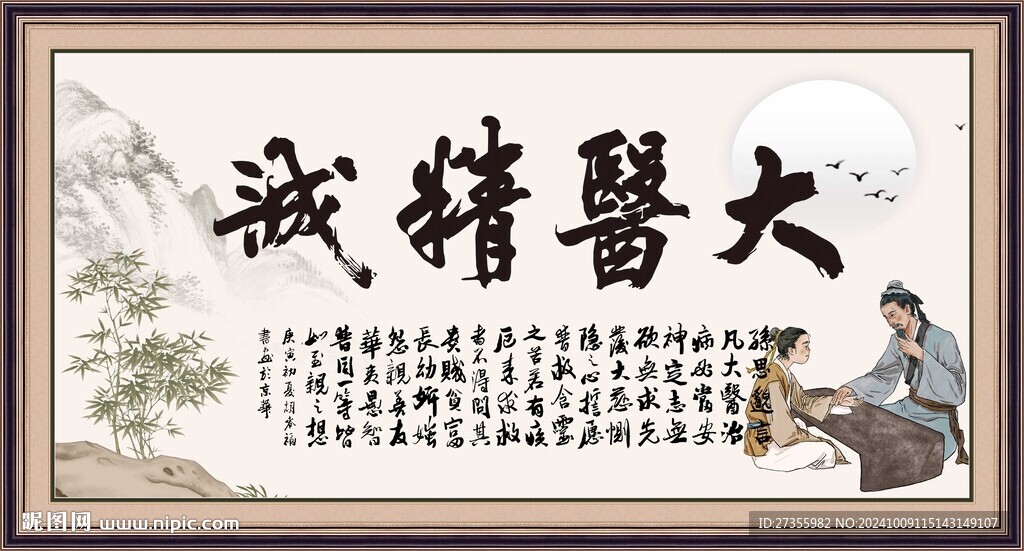 大醫精誠
孫思邈言
凡大醫治
病必當安
神定志無
欲無求先
發大慈惻
隱之心誓願
普救含靈
之苦若有疾
厄來求救
者不得問其
貴賤貧富
長幼妍媸
怨親善友
華夷愚智
普同一等皆
如至親之想
庚寅初夏胡福
書於京華
昵图网 www.nipic.com
ID:27355982 NO:20241009115143149107